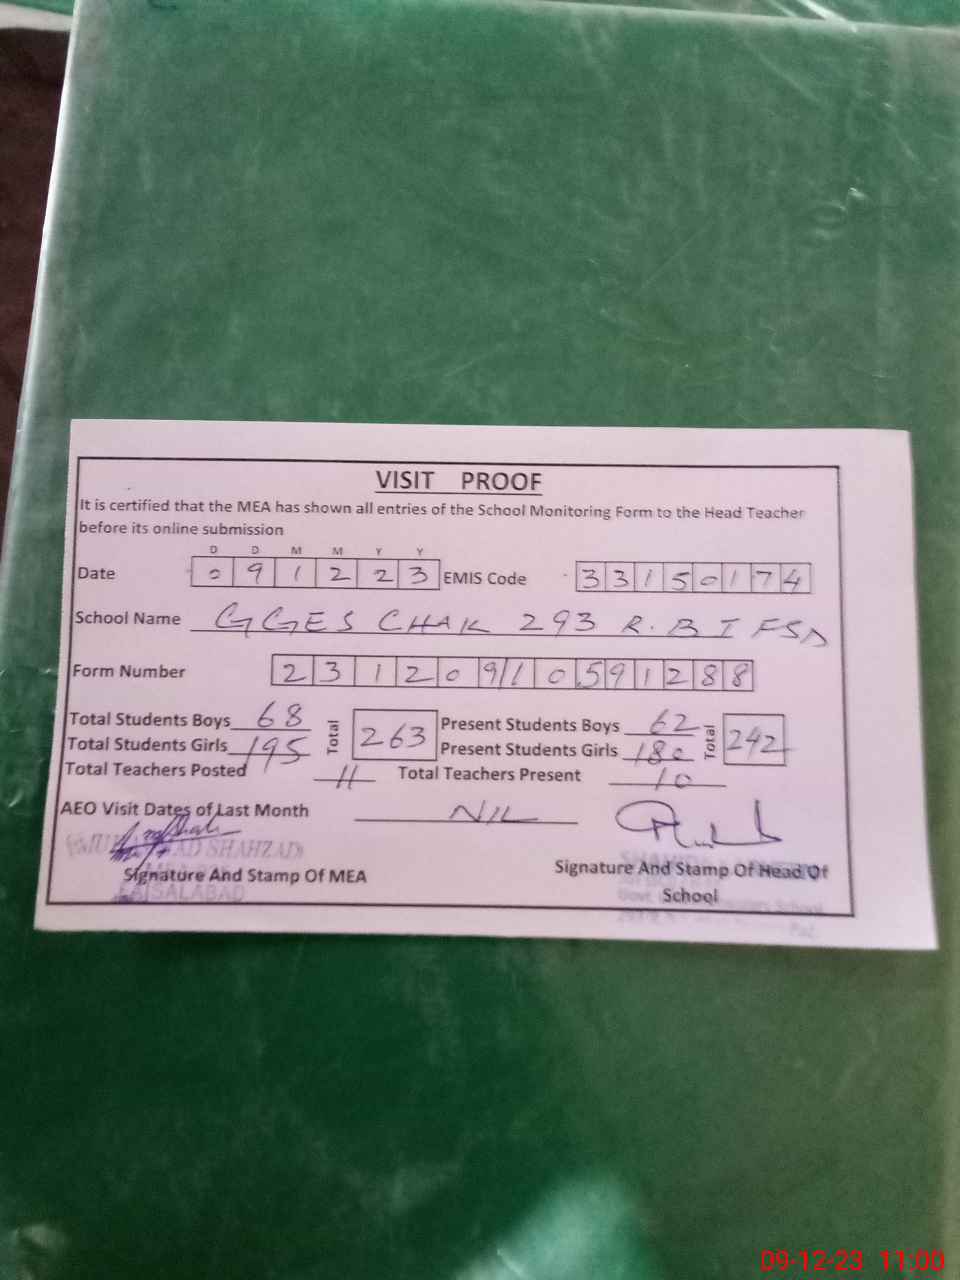 VISIT PROOF
It is certified that the MEA has shown all entries of the School Monitoring Form to the Head Teacher
before its online submission
D D M M Y Y
Date 0 9 1 2 2 3 EMIS Code 3 3 1 5 0 1 7 4
School Name GGES CHAK 293 R.B I FSD
Form Number 2 3 1 2 0 9 1 0 5 9 1 2 8 8
Total Students Boys 68 Total 263 Present Students Boys 62 Total 242
Total Students Girls 195 Present Students Girls 180
Total Teachers Posted 11 Total Teachers Present 10
AEO Visit Dates of Last Month NIL
SHAHZAD
Signature And Stamp Of MEA Signature And Stamp Of Head Of
School
FAISALABAD
09-12-23 11:00